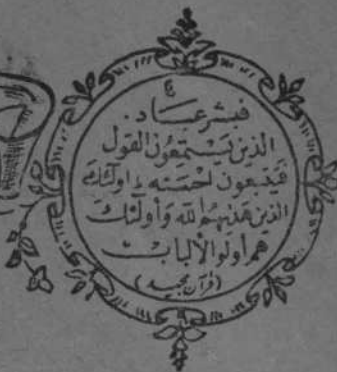 فبشر عباد.
الذین یستمعون القول
فیتبعون احسنه ؛ اولئک
الذین هدیهم الله و اولئک
هم اولوالالباب
(قرآن مجید)